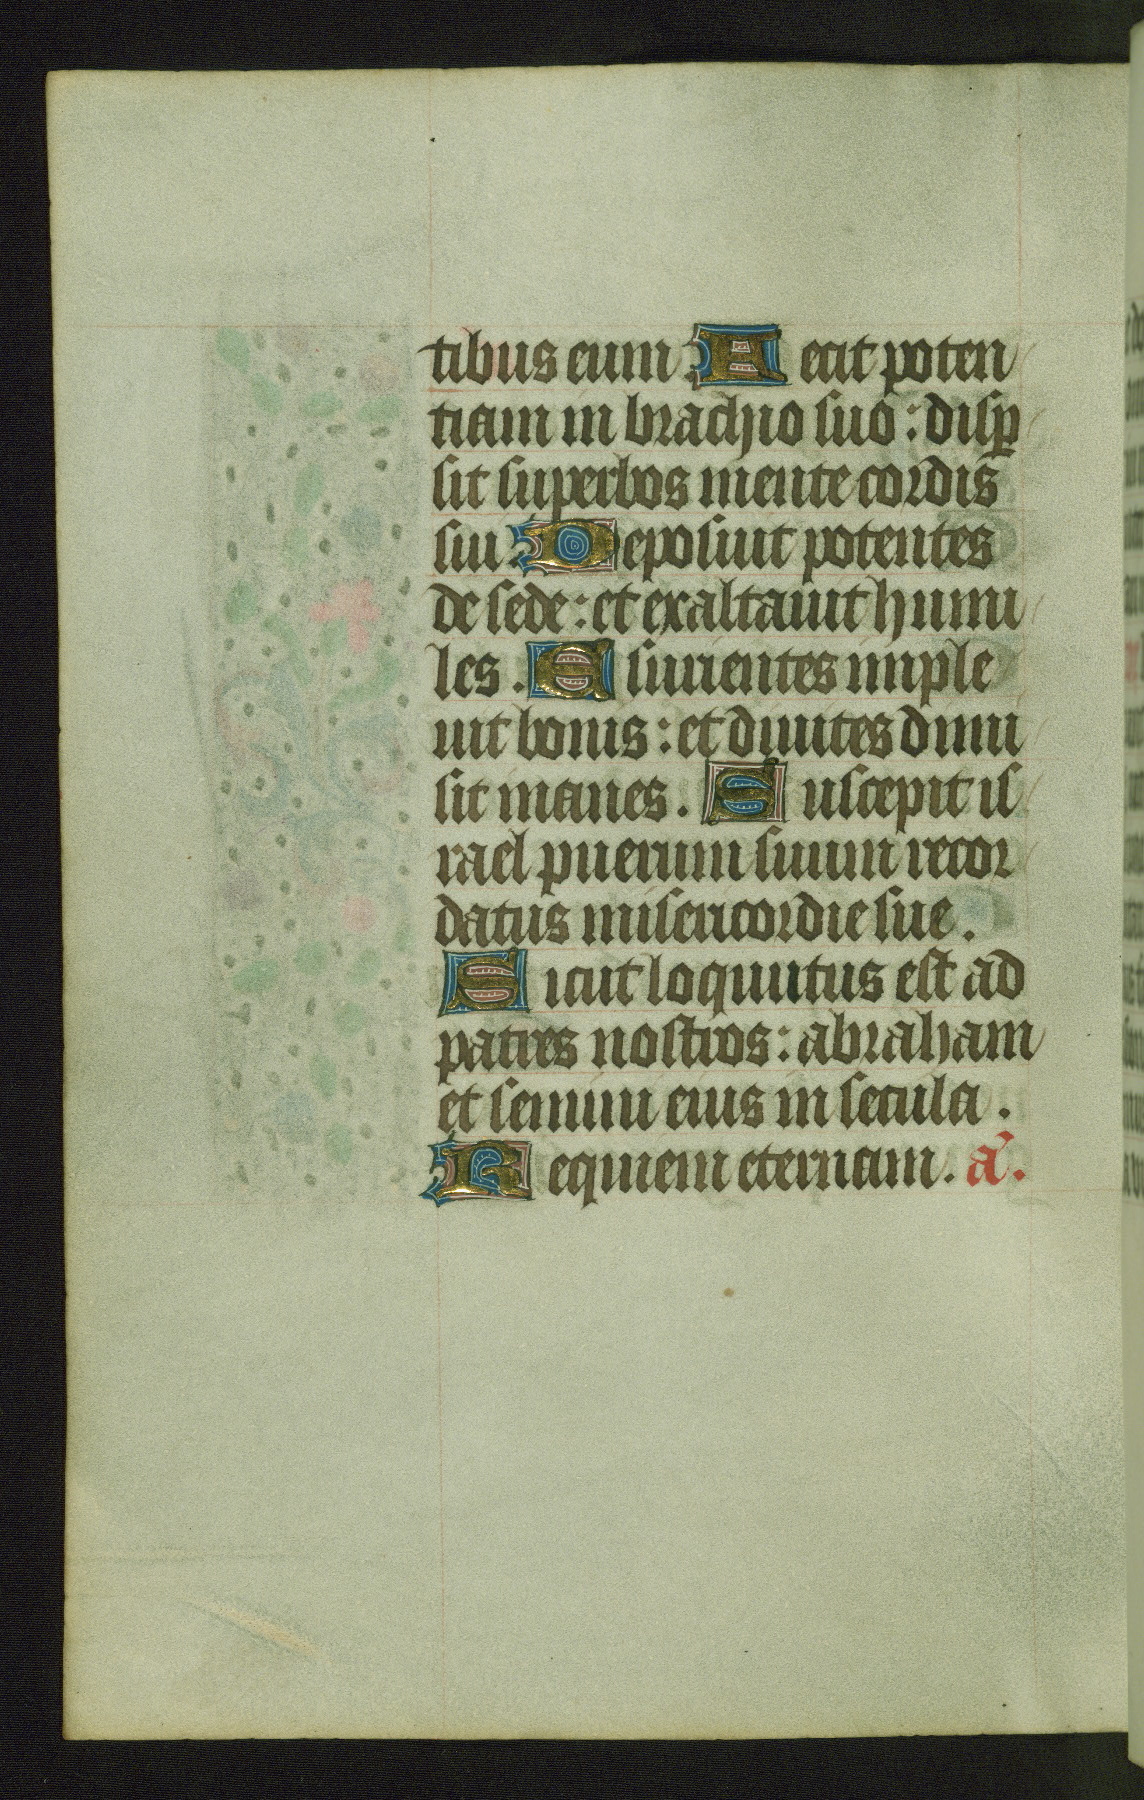 tibus eum. Fecit poten
tiam in brachio suo: disp
sit superbos mente cordis
sui. Deposuit potentes
de sede: et exaltauit humi
les. Esurientes imple
uit bonis: et diuites dimi
sit inanes. Suscepit is
rael puerum suum recor
datus misericordie sue.
Sicut loquutus est ad
patres nostros: abraham
et semini eius in secula.
Requiem eternam. a.